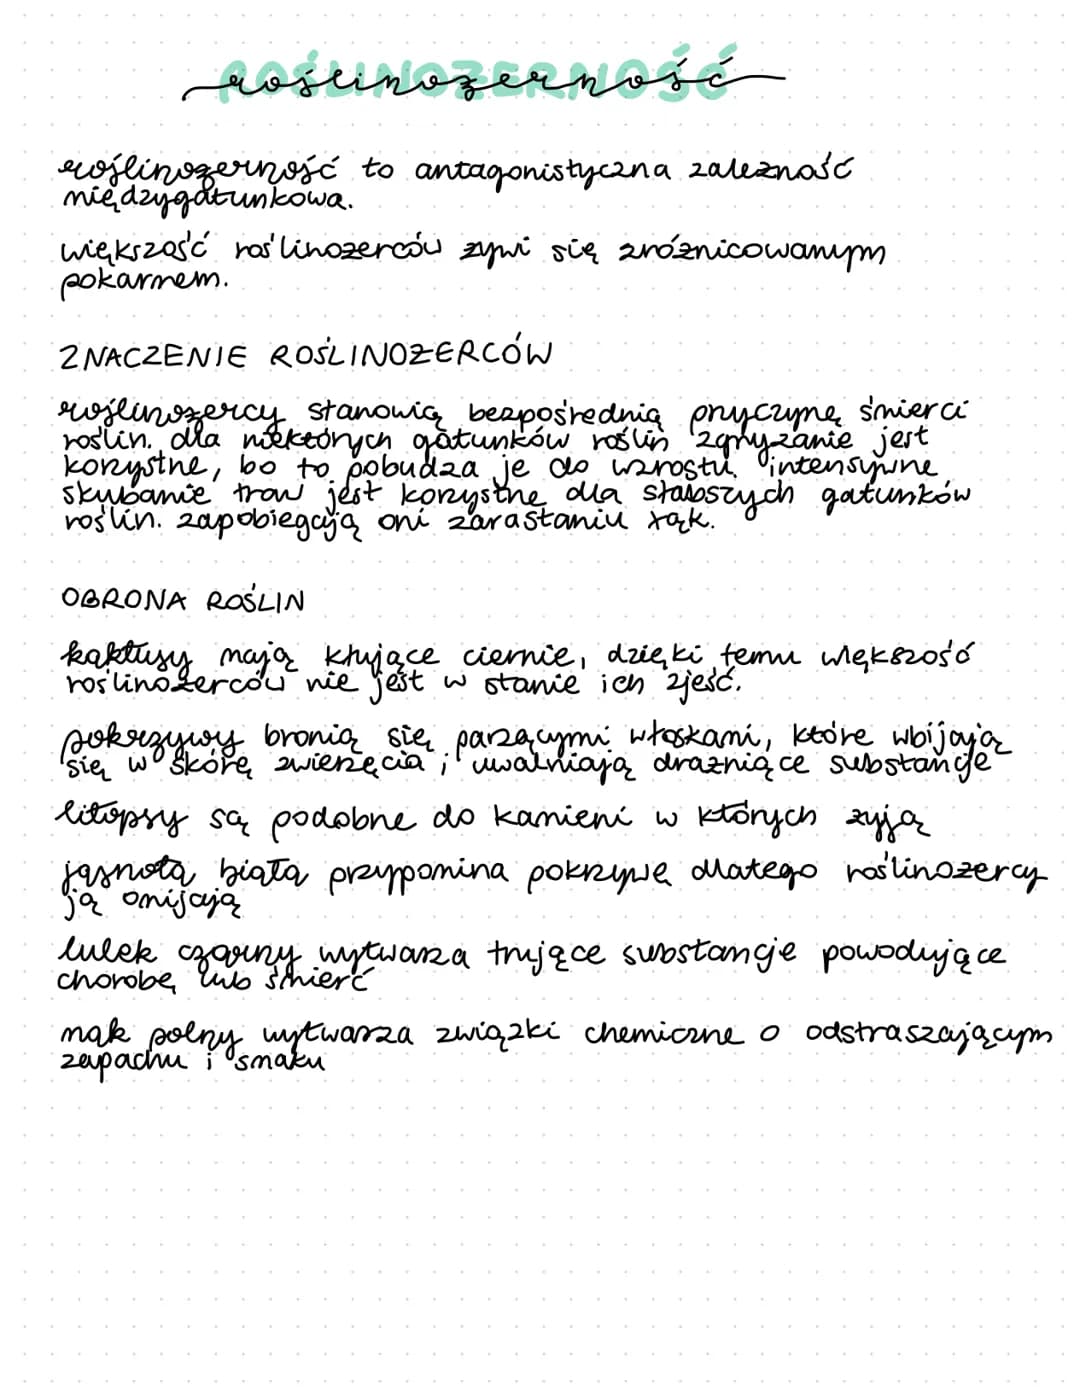 roślinożerność
roślinożerność to antagonistyczna zależność
międzygatunkowa.
większość roślinożerców żywi się zróżnicowanym
pokarmem.
ZNACZENIE ROŚLINOŻERCÓW
roślinożercy stanowią bezpośrednią przyczynę śmierci
roślin. dla niektórych gatunków roślin zgryzanie jest
korzystne, bo to pobudza je do wzrostu. intensywne
skubanie traw jest korzystne dla słabszych gatunków
roślin. zapobiegają oni zarastaniu łąk.
OBRONA ROŚLIN
kaktusy mają kłujące ciernie, dzięki temu większość
roślinożerców nie jest w stanie ich zjeść.
pokrzywy bronią się parzącymi włoskami, które wbijają
się w skórę zwierzęcia i uwalniają drażniące substancje
litopsy są podobne do kamieni w których żyją
jasnota biała przypomina pokrzywę dlatego roślinożercy
ją omijają
lulek czarny wytwarza trujące substancje powodujące
chorobę lub śmierć
mak polny wytwarza związki chemiczne o odstraszającym
zapachu i smaku